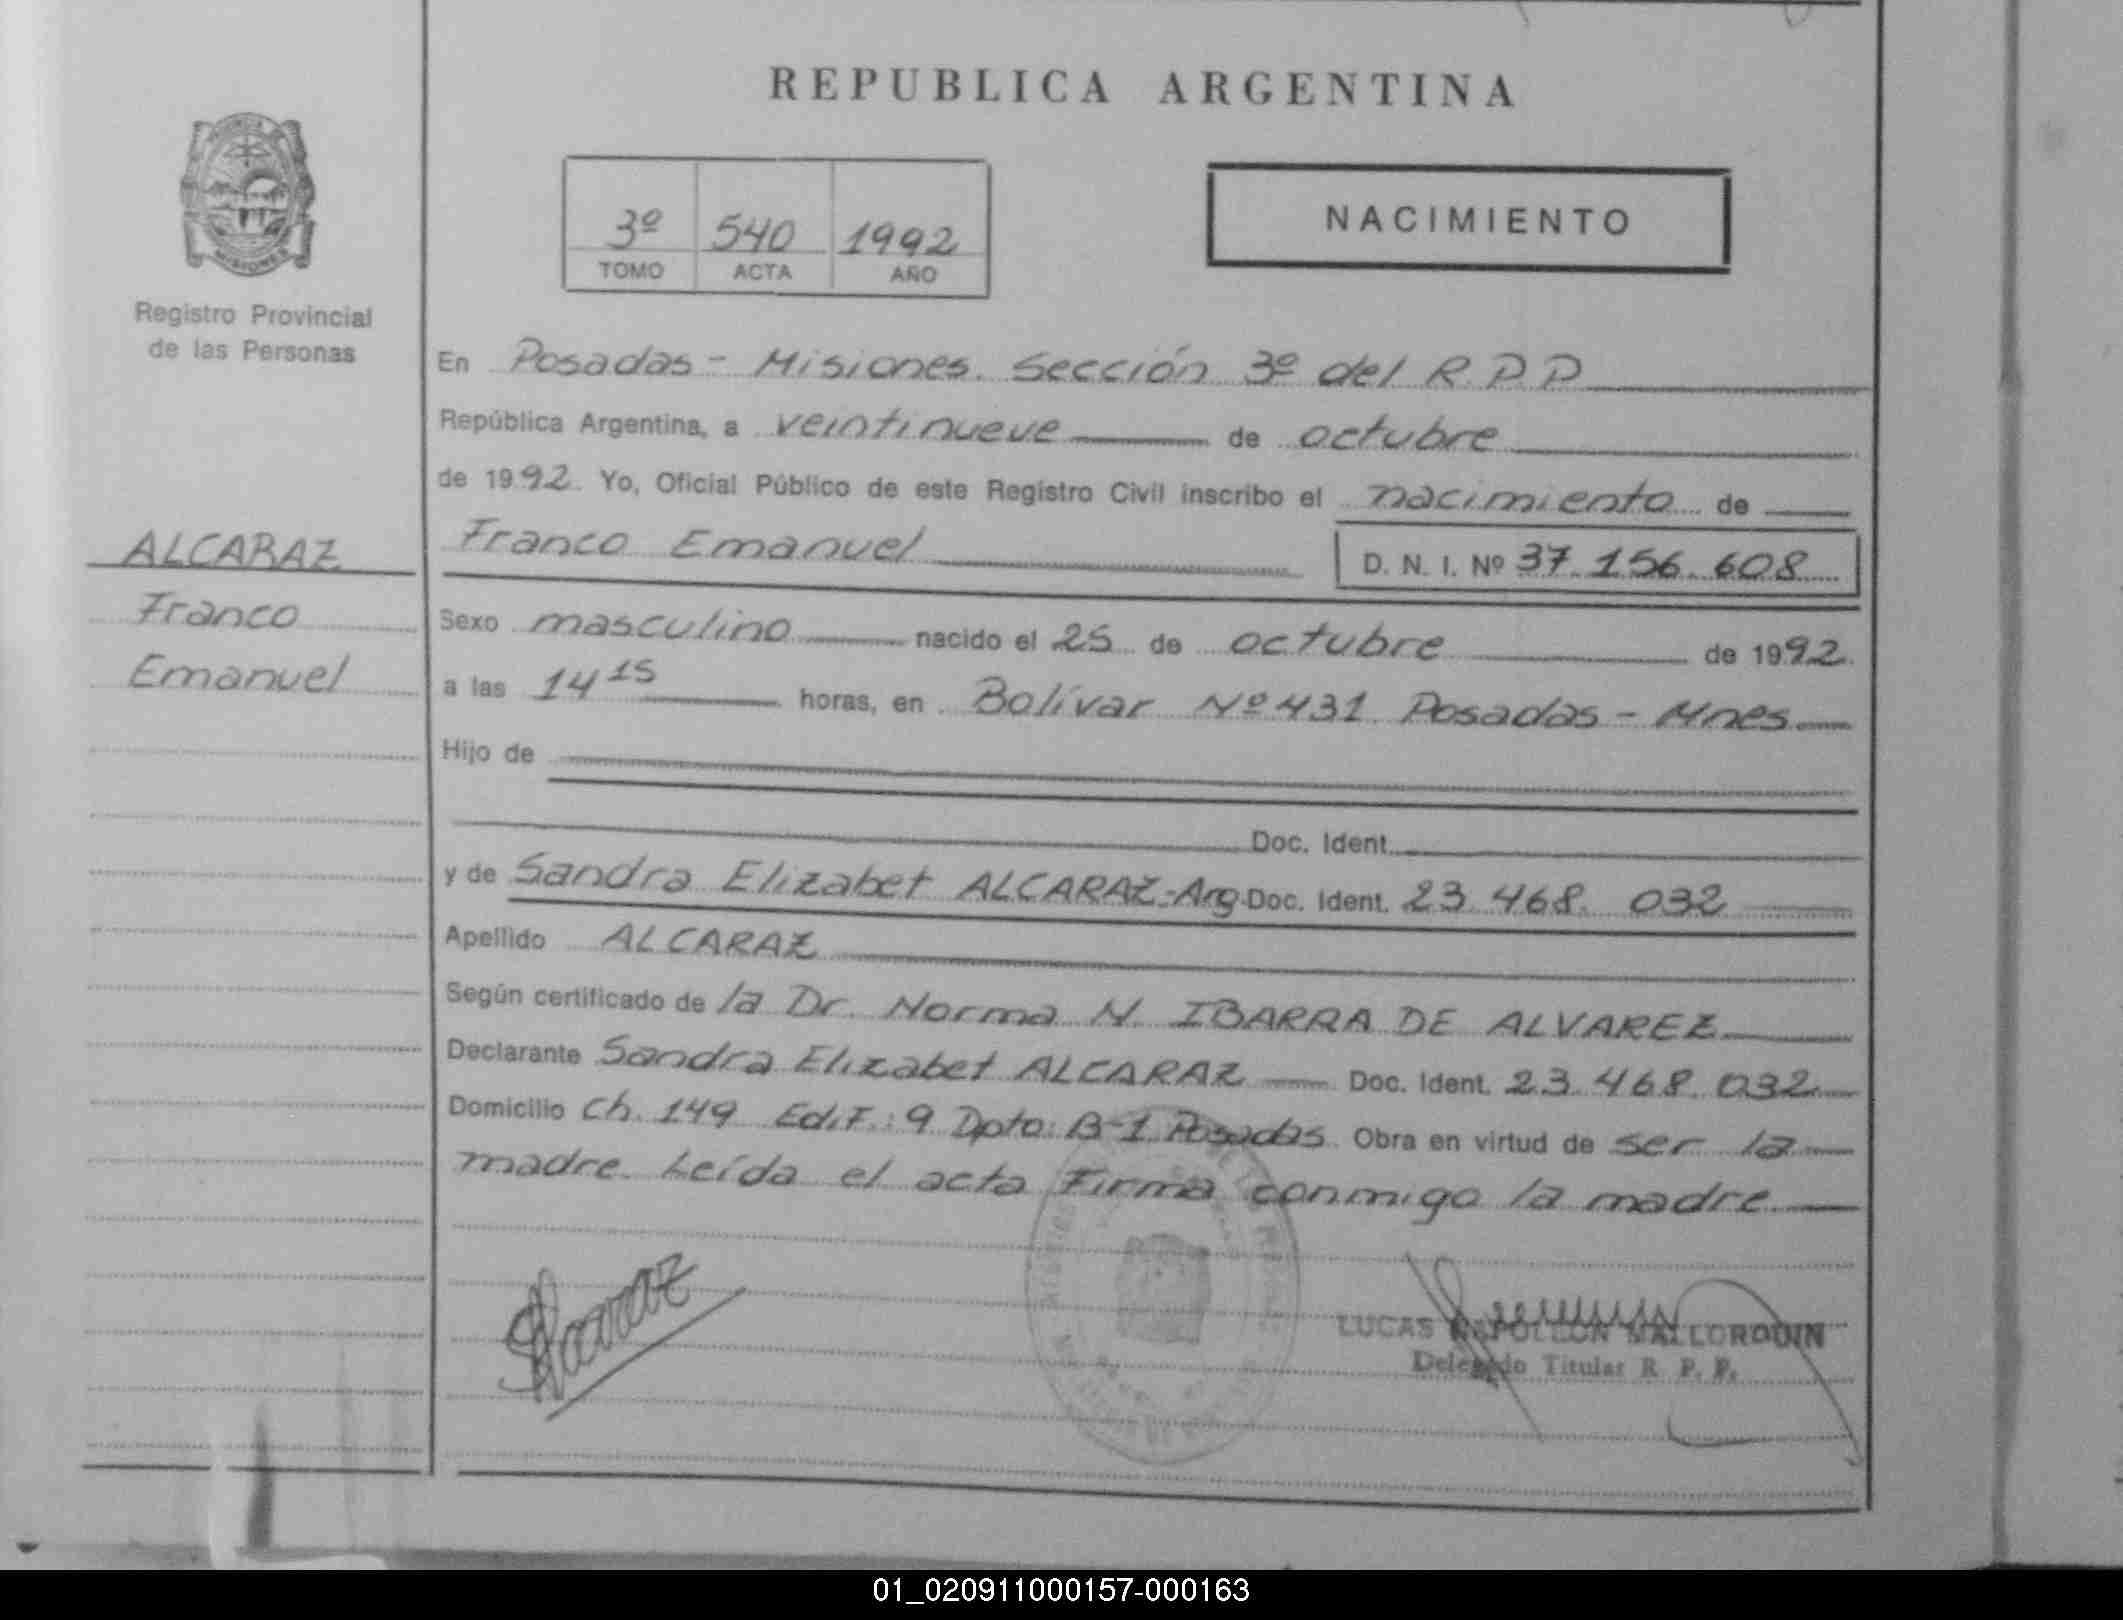 REPUBLICA ARGENTINA
MISIONES
Registro Provincial
de las Personas
3º 540 1992
TOMO ACTA AÑO
NACIMIENTO
En Posadas - Misiones. Sección 3º del R.P.P
República Argentina, a veintinueve de octubre
de 1992. Yo, Oficial Público de este Registro Civil inscribo el nacimiento de
ALCARAZ
Franco
Emanuel
Franco Emanuel
D. N. I. Nº 37.156.608
Sexo masculino nacido el 25 de octubre de 1992.
a las 14 15 horas, en Bolívar Nº 431 Posadas - Mnes
Hijo de
Doc. Ident.
y de Sandra Elizabet ALCARAZ-Arg. Doc. Ident. 23.468.032
Apellido ALCARAZ
Según certificado de la Dr. Norma N. IBARRA DE ALVAREZ
Declarante Sandra Elizabet ALCARAZ Doc. Ident. 23.468.032
Domicilio Ch. 149 Edif.: 9 Dpto: B-1 Posadas. Obra en virtud de ser la
madre. Leída el acta Firma conmigo la madre.
Alcaraz
LUCAS NAPOLEON MALLORQUIN
Delegado Titular R. P. P.
01_020911000157-000163